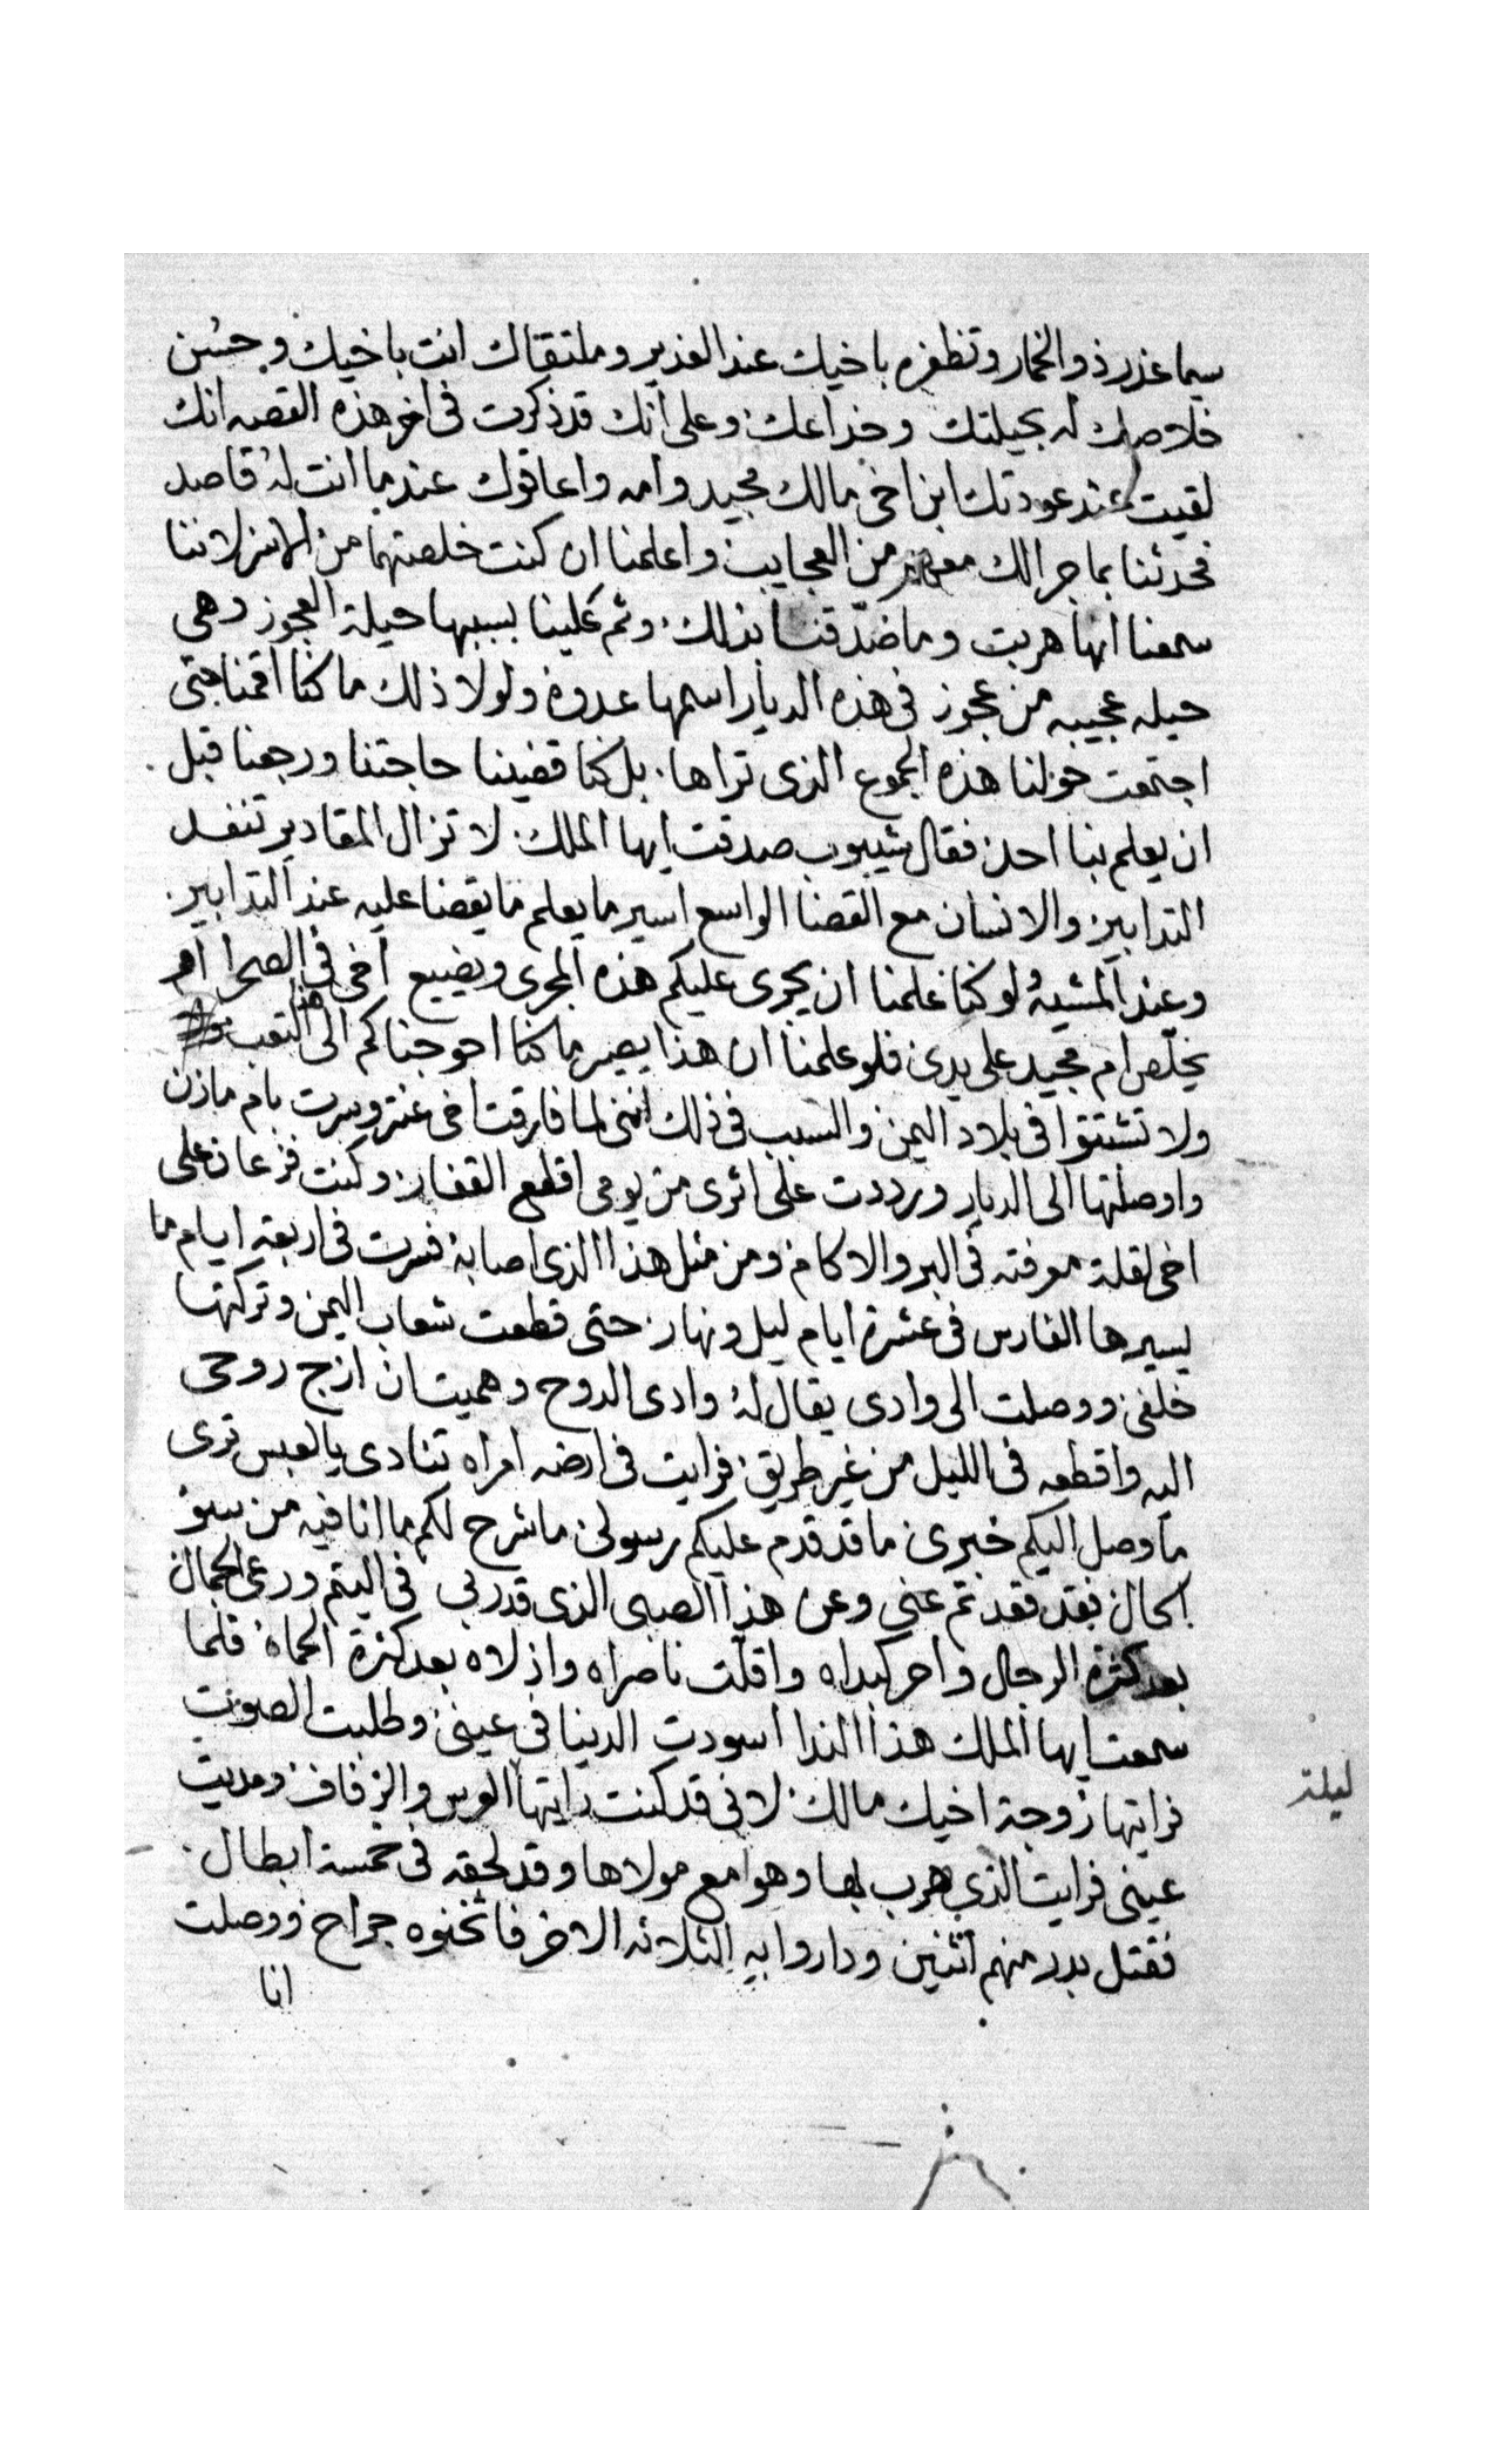 سيما غدر ذو الخمار وتظفره باخيك عند الغدير وملتقاك انت باخيك وحسن
خلاصك له بحيلتك وخداعك وعلى انك قد ذكرت في اخر هذه القصه انك
لقيت عند عودتك ابن اخي مالك مجيد وامه واعاقوك عندما انت له قاصد
فحدثنا بما جرالك معهم من العجايب واعلمنا ان كنت خلصتهما من الاسر لاننا
سمعنا انها هربت وما صدقنا بذلك وتم علينا بسببها حيلة العجوز وهي
حيله عجيبه من عجوز في هذه الديار اسمها عدوة ولولا ذلك ما كنا اقمنا حتى
اجتمعت حولنا هذه الجموع الذي تراها بل كنا قضينا حاجتنا ورجعنا قبل
ان يعلم بنا احد فقال شيبوب صدقت ايها الملك لا تزال المقادير تنفسد
التدابير والانسان مع القضا الواسع اسير ما يعلم ما يقضا عليه عند التدابير
وعند المشيه لو كنا علمنا ان يجرى عليكم هذه المجرى ويضيع اخي في الصحرا لم
يخلص ام مجيد على يدى فلو علمنا ان هذا يصير ما كنا احوجناكم الى هذا التعب
ولا تشتتوا في بلاد اليمن والسبب في ذلك انني لما فارقت اخي عنتر وسرت بام مازن
واوصلتها الى الديار ورددت على اثرى من يومي اقطع القفار وكنت فزعان على
اخي لقلة معرفته في البر والاكام ومن مثل هذا الذي اصابه فسرت في اربعة ايام ما
يسيرها الفارس في عشرة ايام ليل ونهار حتى قطعت شعاب اليمن وتركتها
خلفي ووصلت الى وادى يقال له وادى الدوح وهميت ان ازج روحي
اليه واقطعه في الليل من غير طريق فرايت في ارضه امراه تنادى يالعبس ترى
ما وصل اليكم خبرى ما قد قدم عليكم رسولى ما شرح لكم ما انا فيه من سو
الحال فقد فقدتم عني وعن هذا الصبى الذى قد ربى في اليتم ورعى الجمال
بعد كثرة الرجال واحر كبداه واقلت ناصراه واذلاه بعد كثرة الحماة فلما
سمعت ايها الملك هذا الندا اسودت الدنيا في عيني وطلبت الصوت
فرايتها زوجة اخيك مالك لاني قد كنت رايتها العرس والزفاف ومديت
ليلة
عيني فرايت الذي هرب بها وهوا مع مولاها وقد لحقه في خمسة ابطال
فقتل بدر منهم اثنين وداروا به الثلاثه الاخر فاثخنوه جراح ووصلت
انا